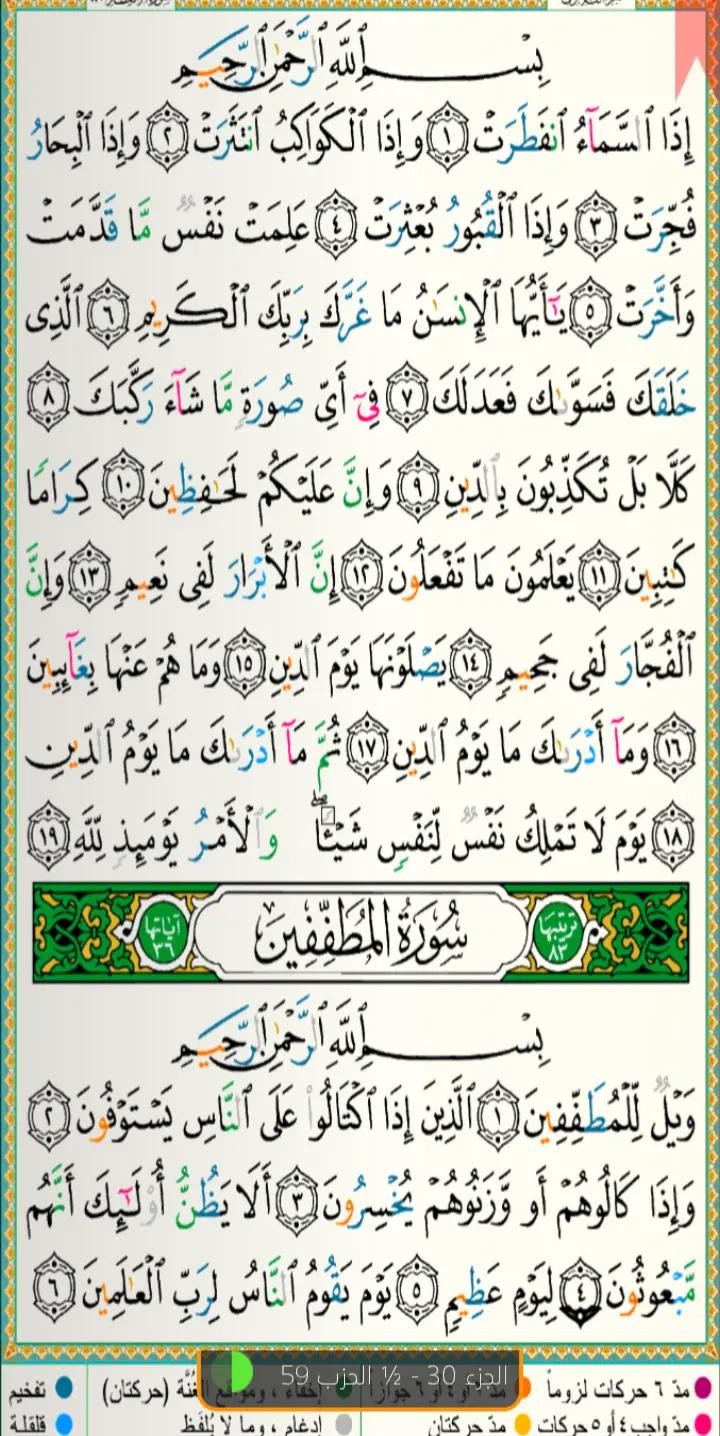 بِسْمِ ٱللَّهِ ٱلرَّحْمَٰنِ ٱلرَّحِيمِ
إِذَا ٱلسَّمَآءُ ٱنفَطَرَتْ ١ وَإِذَا ٱلْكَوَاكِبُ ٱنتَثَرَتْ ٢ وَإِذَا ٱلْبِحَارُ
فُجِّرَتْ ٣ وَإِذَا ٱلْقُبُورُ بُعْثِرَتْ ٤ عَلِمَتْ نَفْسٌ مَّا قَدَّمَتْ
وَأَخَّرَتْ ٥ يَٰٓأَيُّهَا ٱلْإِنسَٰنُ مَا غَرَّكَ بِرَبِّكَ ٱلْكَرِيمِ ٦ ٱلَّذِى
خَلَقَكَ فَسَوَّىٰكَ فَعَدَلَكَ ٧ فِىٓ أَىِّ صُورَةٍ مَّا شَآءَ رَكَّبَكَ ٨
كَلَّا بَلْ تُكَذِّبُونَ بِٱلدِّينِ ٩ وَإِنَّ عَلَيْكُمْ لَحَٰفِظِينَ ١٠ كِرَامًا
كَٰتِبِينَ ١١ يَعْلَمُونَ مَا تَفْعَلُونَ ١٢ إِنَّ ٱلْأَبْرَارَ لَفِى نَعِيمٍ ١٣ وَإِنَّ
ٱلْفُجَّارَ لَفِى جَحِيمٍ ١٤ يَصْلَوْنَهَا يَوْمَ ٱلدِّينِ ١٥ وَمَا هُمْ عَنْهَا بِغَآئِبِينَ
١٦ وَمَآ أَدْرَىٰكَ مَا يَوْمُ ٱلدِّينِ ١٧ ثُمَّ مَآ أَدْرَىٰكَ مَا يَوْمُ ٱلدِّينِ
١٨ يَوْمَ لَا تَمْلِكُ نَفْسٌ لِّنَفْسٍ شَيْـًٔا ۖ وَٱلْأَمْرُ يَوْمَئِذٍ لِّلَّهِ ١٩
ترتيبها ٨٣ سُورَةُ المُطَفِّفِينَ آياتها ٣٦
بِسْمِ ٱللَّهِ ٱلرَّحْمَٰنِ ٱلرَّحِيمِ
وَيْلٌ لِّلْمُطَفِّفِينَ ١ ٱلَّذِينَ إِذَا ٱكْتَالُوا۟ عَلَى ٱلنَّاسِ يَسْتَوْفُونَ ٢
وَإِذَا كَالُوهُمْ أَو وَّزَنُوهُمْ يُخْسِرُونَ ٣ أَلَا يَظُنُّ أُو۟لَٰٓئِكَ أَنَّهُم
مَّبْعُوثُونَ ٤ لِيَوْمٍ عَظِيمٍ ٥ يَوْمَ يَقُومُ ٱلنَّاسُ لِرَبِّ ٱلْعَٰلَمِينَ ٦
الجزء 30 - ½ الحزب 59
مدّ ٦ حركات لزوماً او ٤ او ٦ جوازاً إخفاء ، ومواقع الغُنَّة (حركتان) تفخيم
مدّ واجب ٤ أو ٥ حركات مدّ حركتان إدغام ، وما لا يُلفَظ قلقلة